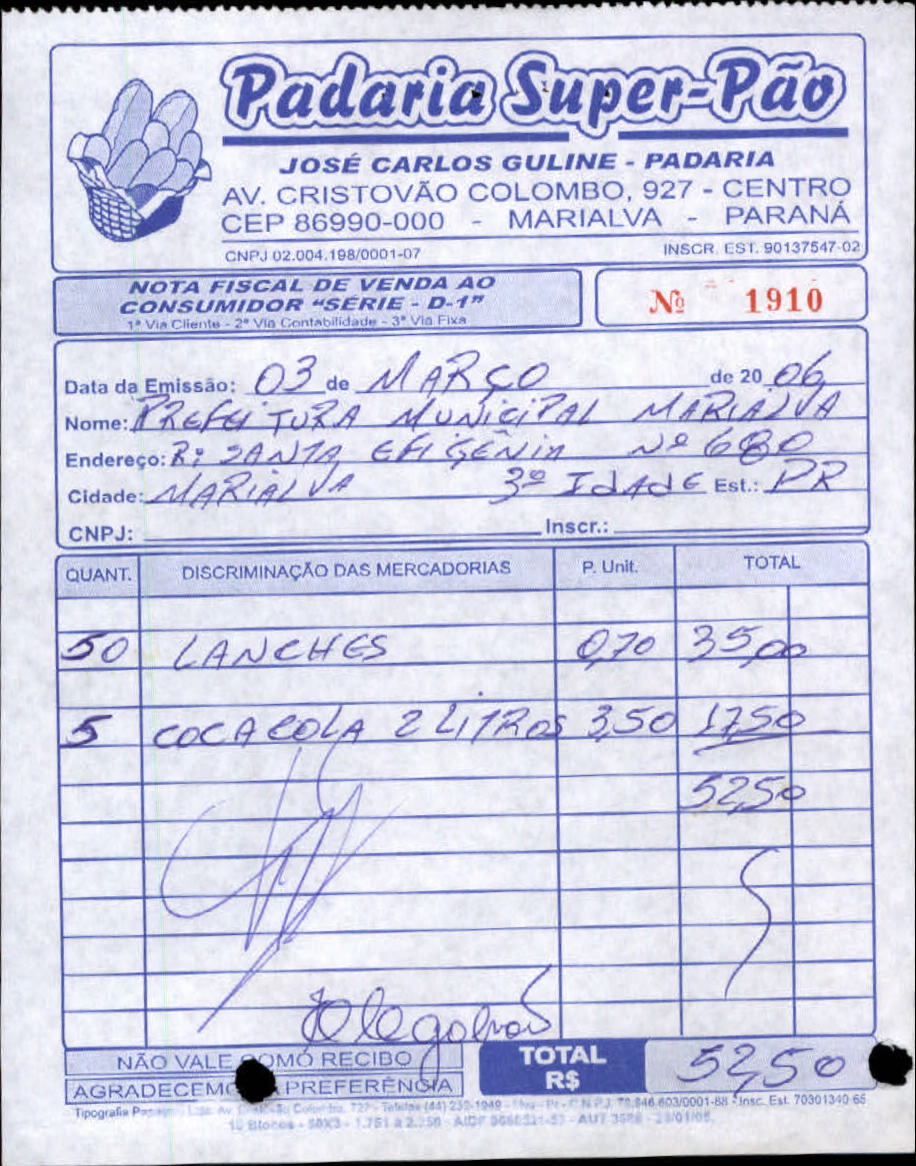 Padaria Super-Pão
JOSÉ CARLOS GULINE - PADARIA
AV. CRISTOVÃO COLOMBO, 927 - CENTRO
CEP 86990-000 - MARIALVA - PARANÁ
CNPJ 02.004.198/0001-07 INSCR. EST. 90137547-02
NOTA FISCAL DE VENDA AO
CONSUMIDOR "SÉRIE - D-1"
1ª Via Cliente - 2ª Via Contabilidade - 3ª Via Fixa
Nº 1910
Data da Emissão: 03 de MARÇO de 20 06
Nome: PREFEITURA MUNICIPAL MARIALVA
Endereço: R: SANTA EFIGÊNIA Nº 680
Cidade: MARIALVA 3º IDADE Est.: PR
CNPJ: Inscr.:
QUANT. DISCRIMINAÇÃO DAS MERCADORIAS P. Unit. TOTAL
50 LANCHES 0,70 35,00
5 COCA COLA 2 LITROS 3,50 17,50
52,50
NÃO VALE COMO RECIBO
AGRADECEMOS A PREFERÊNCIA
TOTAL R$ 52,50
Tipografia Av. 727 - (44) 232-1949 - - Pr - C.N.P.J. 603/0001-88 - Insc. Est. 70301340-65
10 Blocos - 50X3 - 1.751 a 2.250 - AIDF - AUT